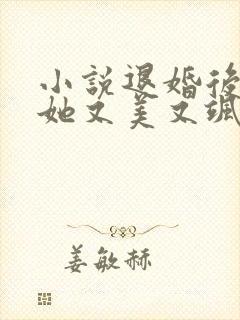 小說退婚後
她又美又颯
姜敏赫